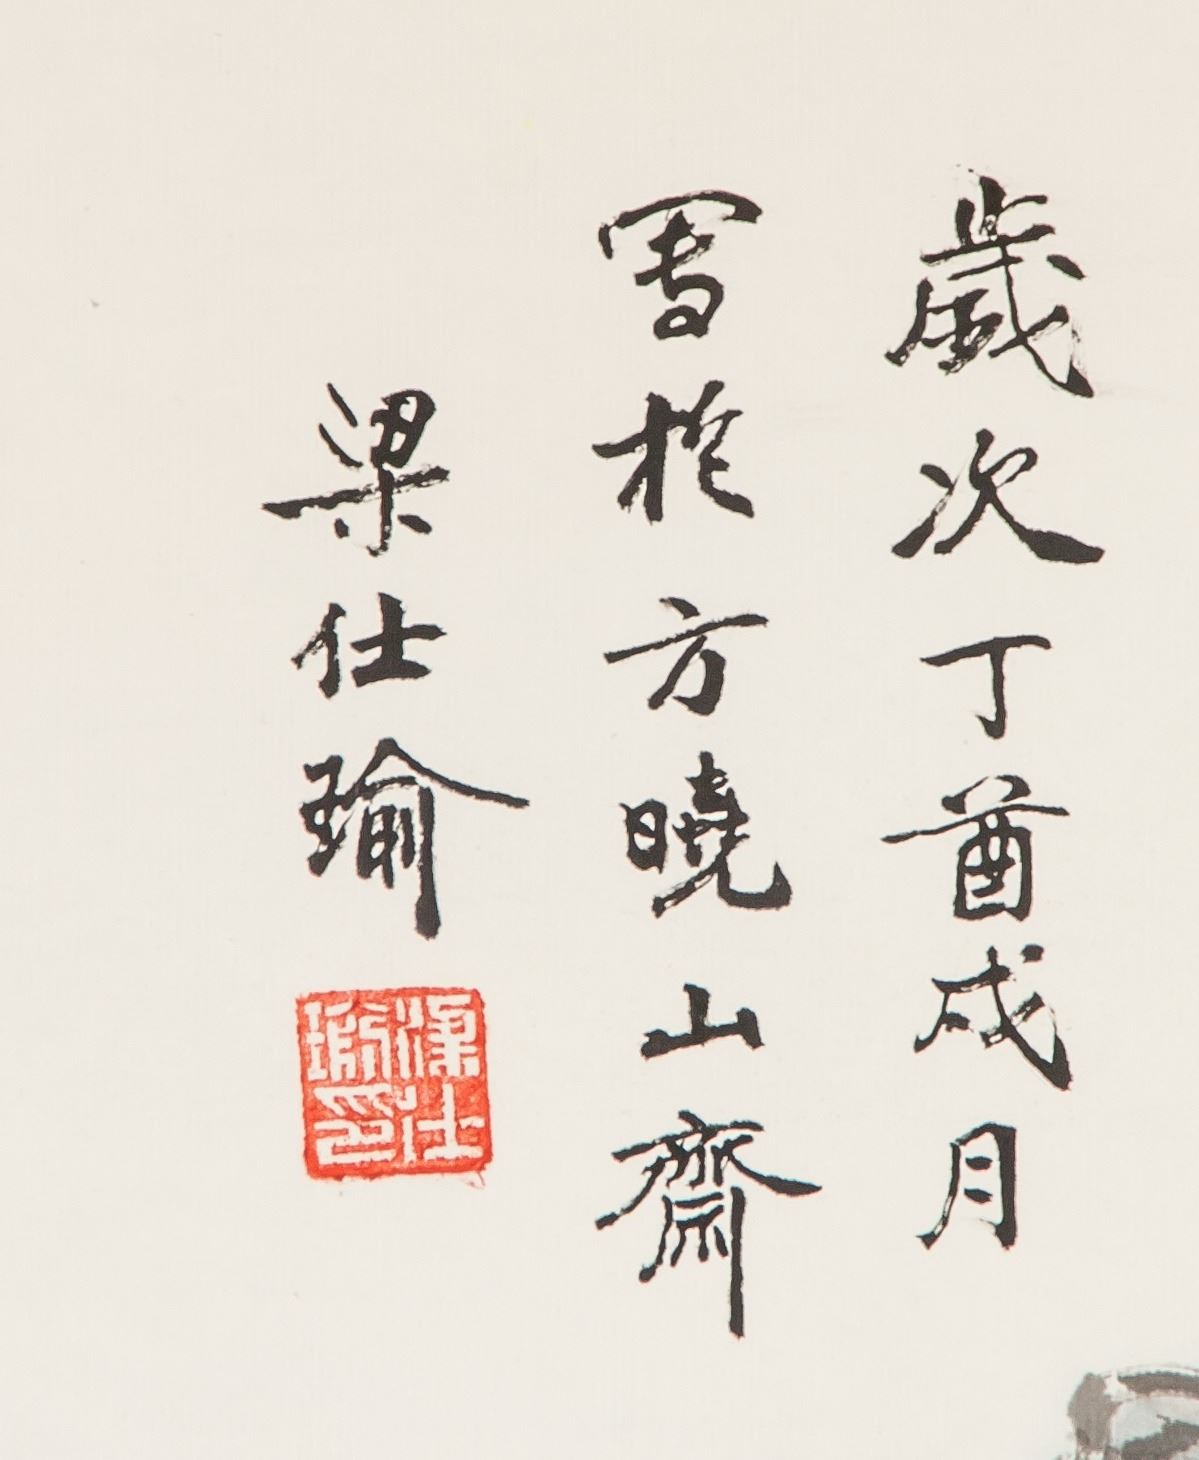 歲次丁酋戌月
写於方曉山齋
梁仕瑜
梁仕瑜印